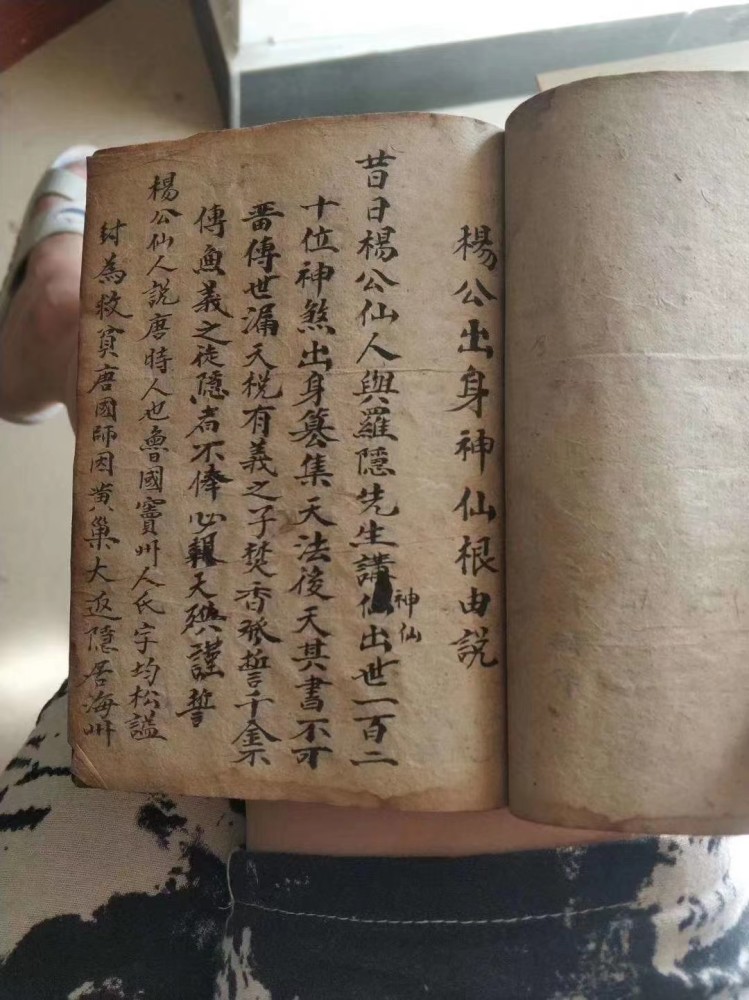 楊公出身神仙根由說
昔日楊公仙人與羅隱先生講仙出世一百二
神仙
十位神煞出身篡集天法後天其書不可
畨傳世漏天机有義之子焚香發誓千金不
傳魚義之徒隱者不俸心報天殃謹誓
楊公仙人說唐時人也魯國竇州人氏字均松謚
封為救貧唐國師因黄巢大返隱居海州